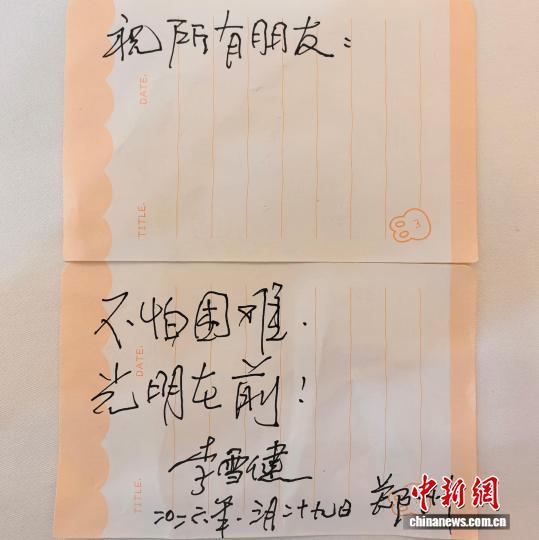 祝所有朋友：
DATE.
TITLE.
不怕困难.
光明在前！
DATE.
李雪健
TITLE.
二〇二六年.月二十九日
郑
中新网
www.chinanews.com
chinanews.com